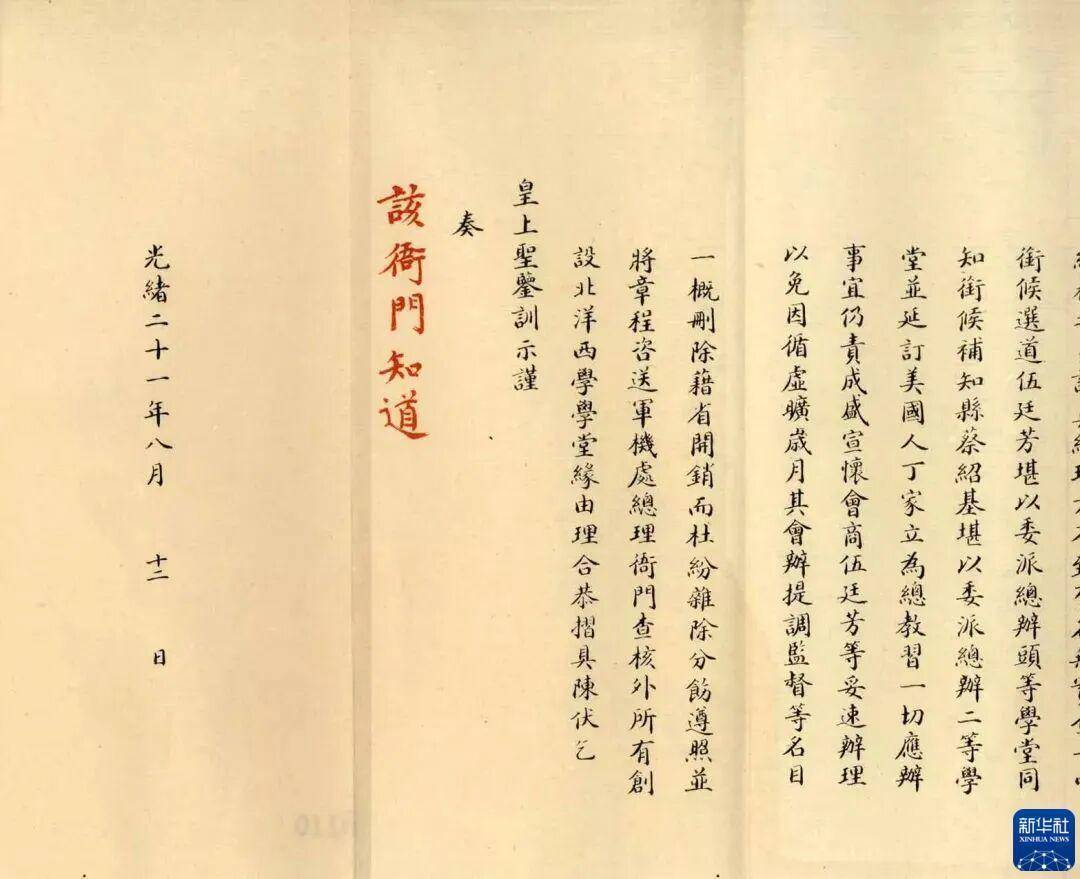 銜候選道伍廷芳堪以委派總辦頭等學堂同
知銜候補知縣蔡紹基堪以委派總辦二等學
堂並延訂美國人丁家立為總教習一切應辦
事宜仍責成盛宣懷會商伍廷芳等妥速辦理
以免因循虛曠歲月其會辦提調監督等名目
一概刪除藉省開銷而杜紛雜除分飭遵照並
將章程咨送軍機處總理衙門查核外所有創
設北洋西學學堂緣由理合恭摺具陳伏乞
皇上聖鑒訓示謹
奏
該衙門知道
光緒二十一年八月 十二 日
0110
新华社
XINHUA NEWS